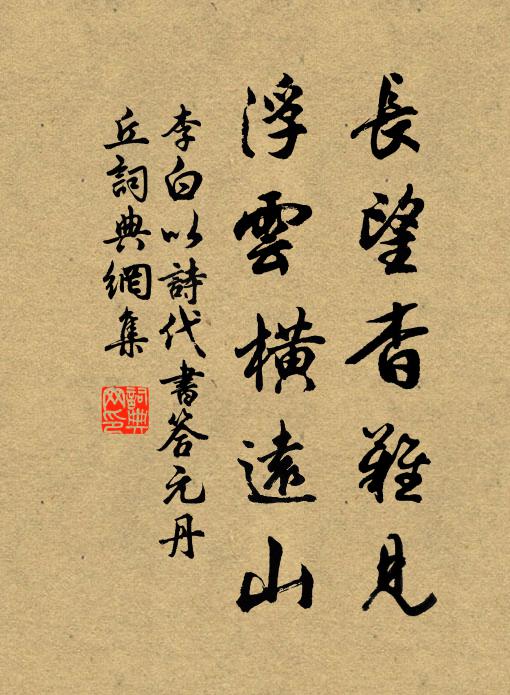 長望杳難見
浮雲橫遠山
李白以詩代書答元丹
丘詞典網集
詞典
网印